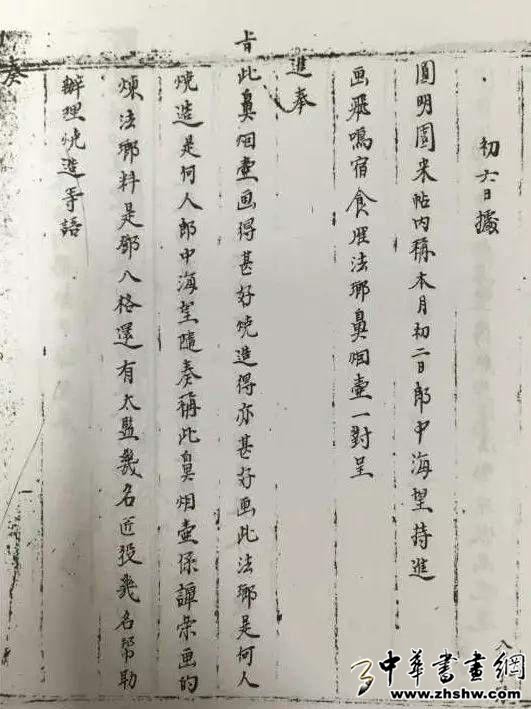 初六日據
圓明園來帖內稱本月初二日郎中海望持進
画飛鳴宿食雁法瑯鼻烟壺一對呈
進奉
旨此鼻烟壺画得甚好燒造得亦甚好画此法瑯是何人
燒造是何人郎中海望隨奏稱此鼻烟壺係譚榮画的
煉法瑯料是鄧八格還有太監幾名匠役幾名幫助
辦理燒造等語
奏
八
中華書畫網
www.zhshw.com